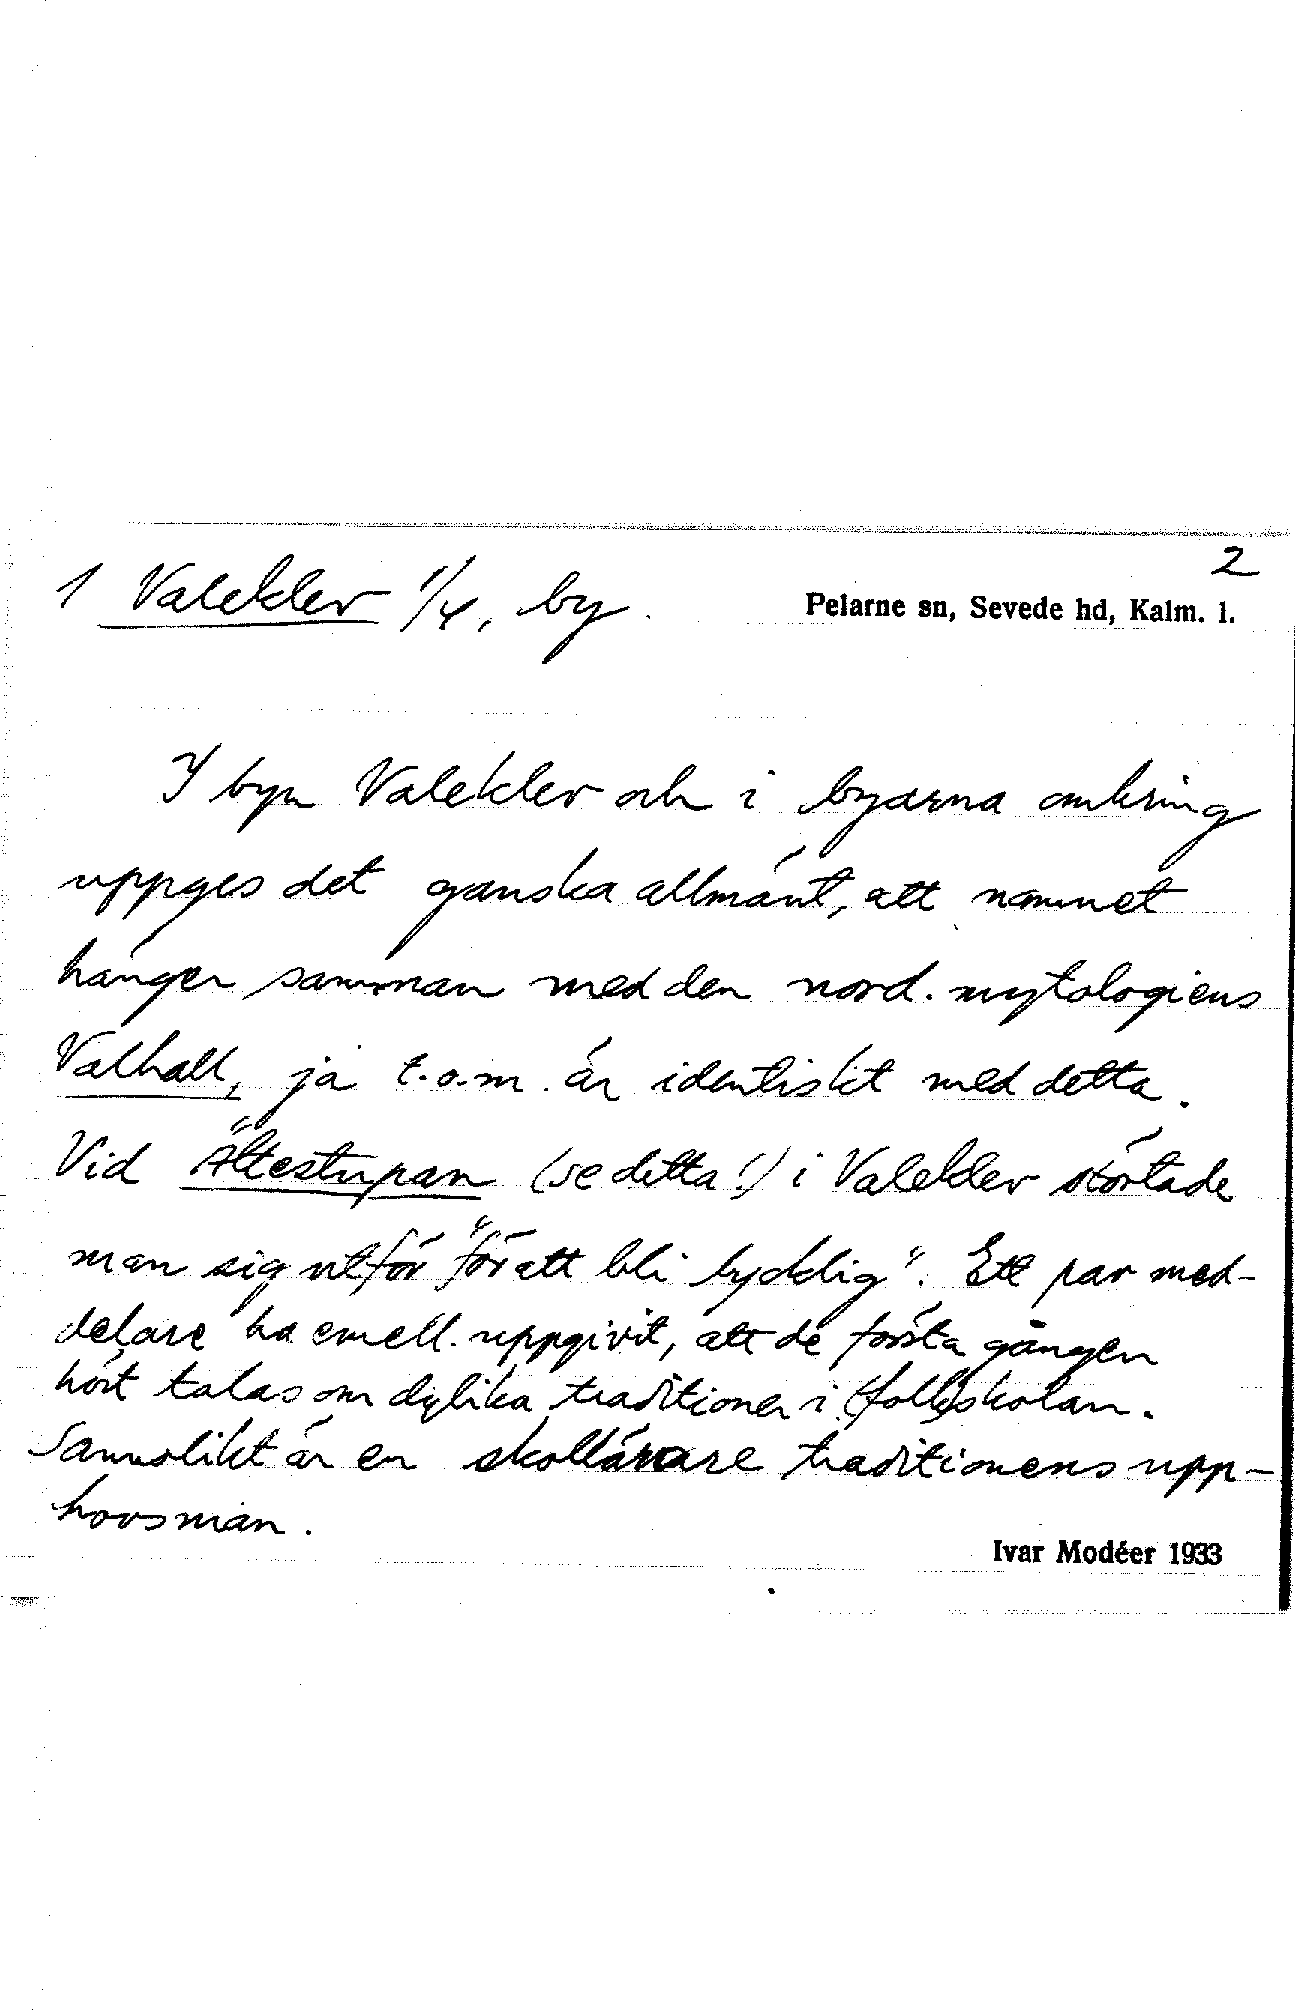 2
1 Valeklev 1/4, by.
Pelarne sn, Sevede hd, Kalm. l.
I byn Valeklev och i byarna omkring
uppges det ganska allmänt, att namnet
hänger samman med den nord. mytologiens
Valhall, ja t.o.m. är identiskt med detta.
Vid Ältestupan (se detta!) i Valeklev störtade
man sig utför "för att bli lycklig". Ett par med-
delare ha emell. uppgivit, att de första gången
hört talas om dylika traditioner i folkskolan.
Sannolikt är en skollärare traditionens upp-
hovsman.
Ivar Modéer 1933